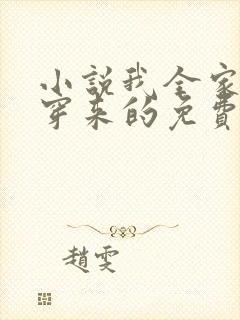 小說我全家
穿來的免費
趙雯